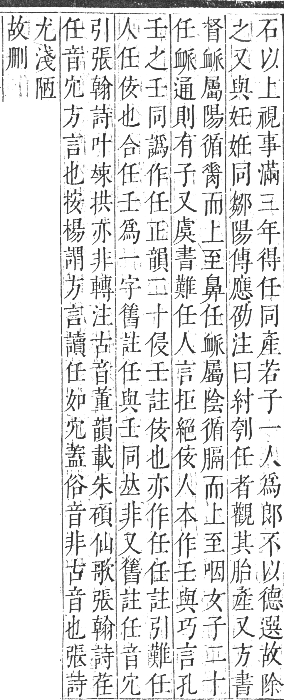 石以上視事滿三年得任同產若子一人爲郎不以德選故除
之又與妊姙同鄒陽傳應劭注曰紂刳任者觀其胎產又方書
督脈屬陽循脊而上至鼻任脈屬陰循膈而上至咽女子二十
任脈通則有子又虞書難任人言拒絕佞人本作壬與巧言孔
壬之壬同譌作任正韻二十侵壬註佞也亦作任任註引難任
人任佞也合任壬爲一字舊註任與壬同𠀤非又舊註任音宂
引張翰詩叶竦拱亦非轉注古音董韻載朱碩仙歌張翰詩荏
任音宂方言也按楊謂方言讀任如宂蓋俗音非古音也張詩
尤淺陋
故刪